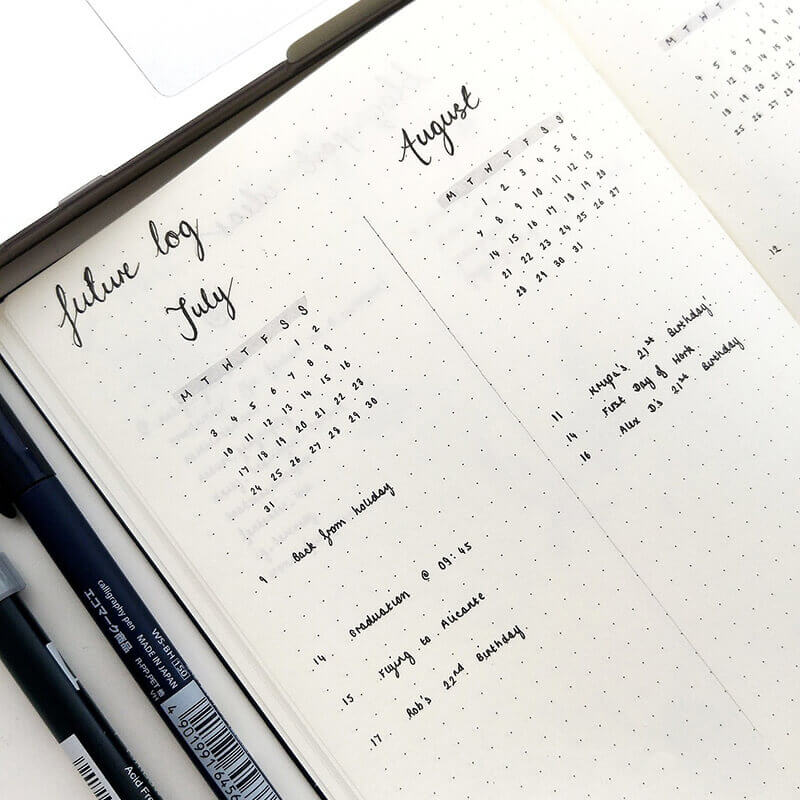 future log
July
M T W T F S S
1 2
3 4 5 6 7 8 9
10 11 12 13 14 15 16
17 18 19 20 21 22 23
24 25 26 27 28 29 30
31
9 Back from holiday
14 Graduation @ 09:45
15 Flying to Alicante
17 Rob's 22nd Birthday
August
M T W T F S S
1 2 3 4 5 6
7 8 9 10 11 12 13
14 15 16 17 18 19 20
21 22 23 24 25 26 27
28 29 30 31
11 Krupa's 21st Birthday!
14 First Day of Work
16 Alex D's 21st Birthday
M T W T
4 5 6 7 8 9
11 12 13 14 15
18 19 20 21 22
25 26 27 28
12
calligraphy pen
エコマーク商品
WS-BH 150
MADE IN JAPAN
R-PP,PET 他
VH
4 901991 6456
Acid Fr